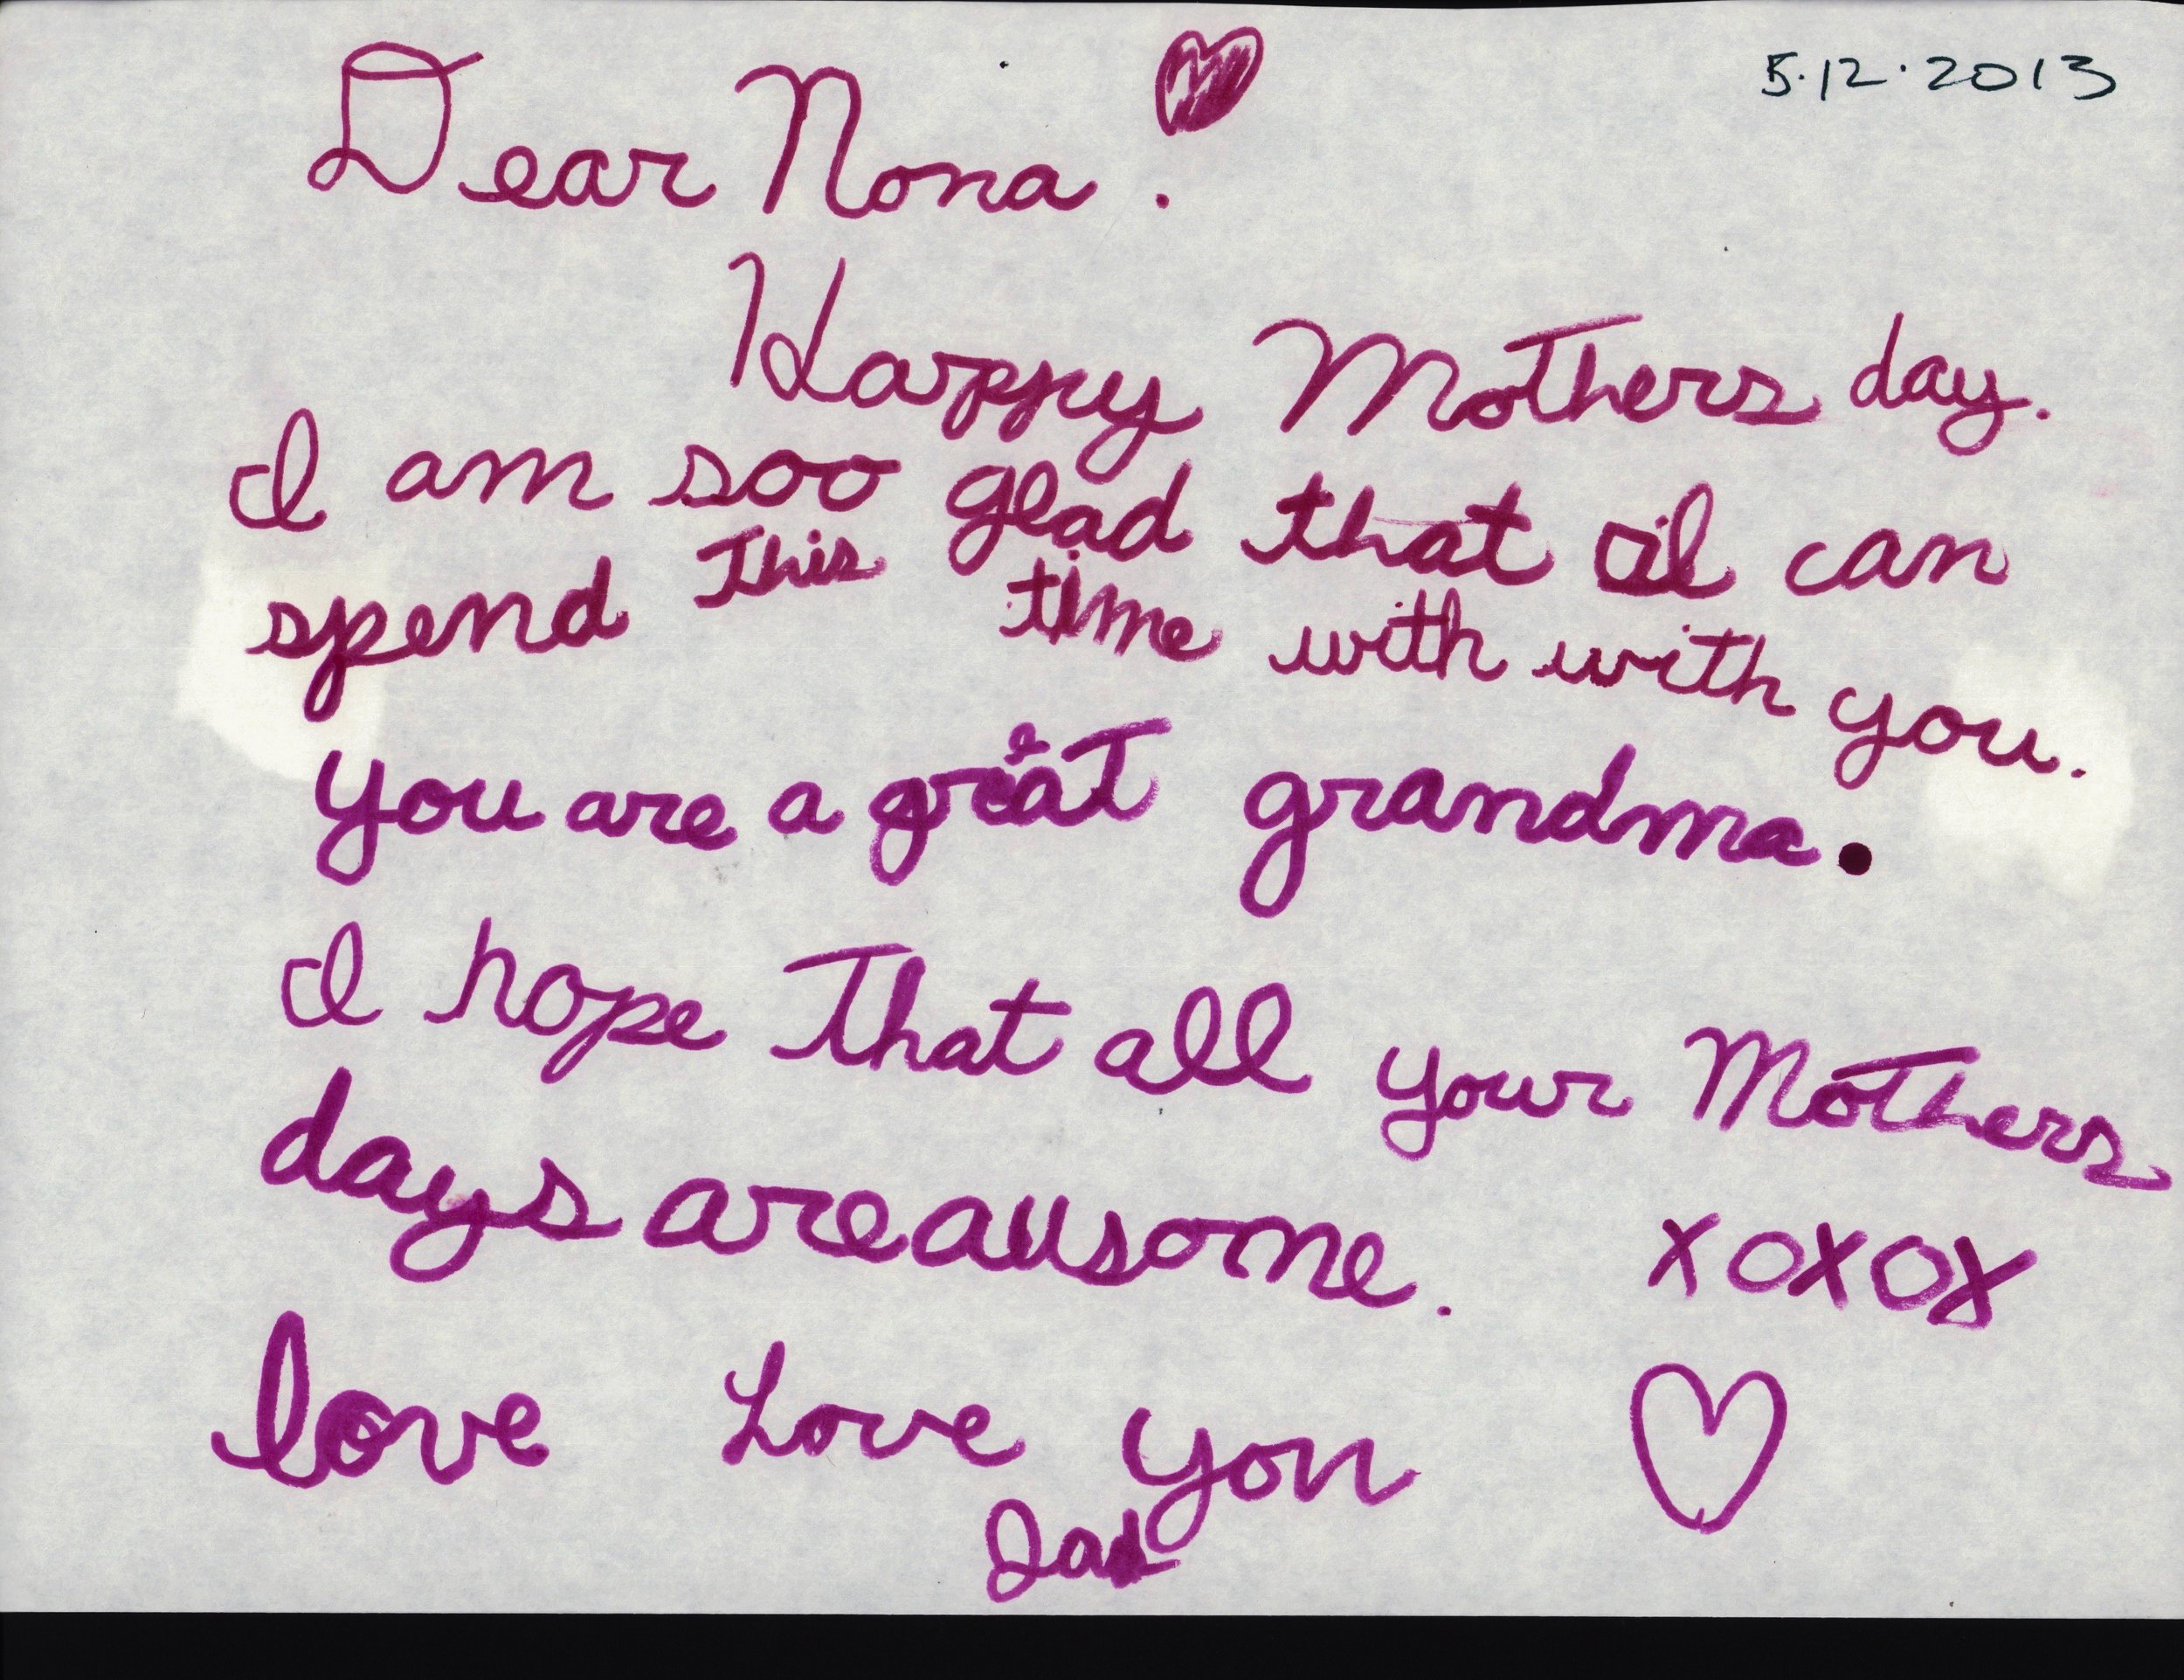 5.12.2013
Dear Nona
Happy Mothers day.
I am soo glad that I can
spend this time with with you.
you are a great grandma.
I hope that all your Mothers
days are ausome. xoxox
love Love you